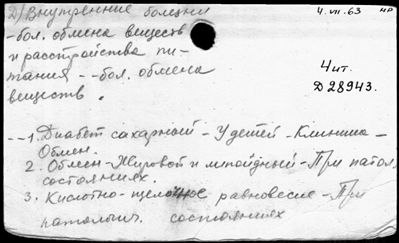 2) Внутренние болезни
4. VII. 63 НР
- бол. обмена веществ
и расстройства пи-
тания - - бол. обмена
веществ.
Чит.
D 28943.
-- 1. Диабет сахарный - У детей - Клиника -
Обмен.
2. Обмен - Жировой и липоидный - При патол.
состояниях.
3. Кислотно-щелочное равновесие - При
патолог. состояниях